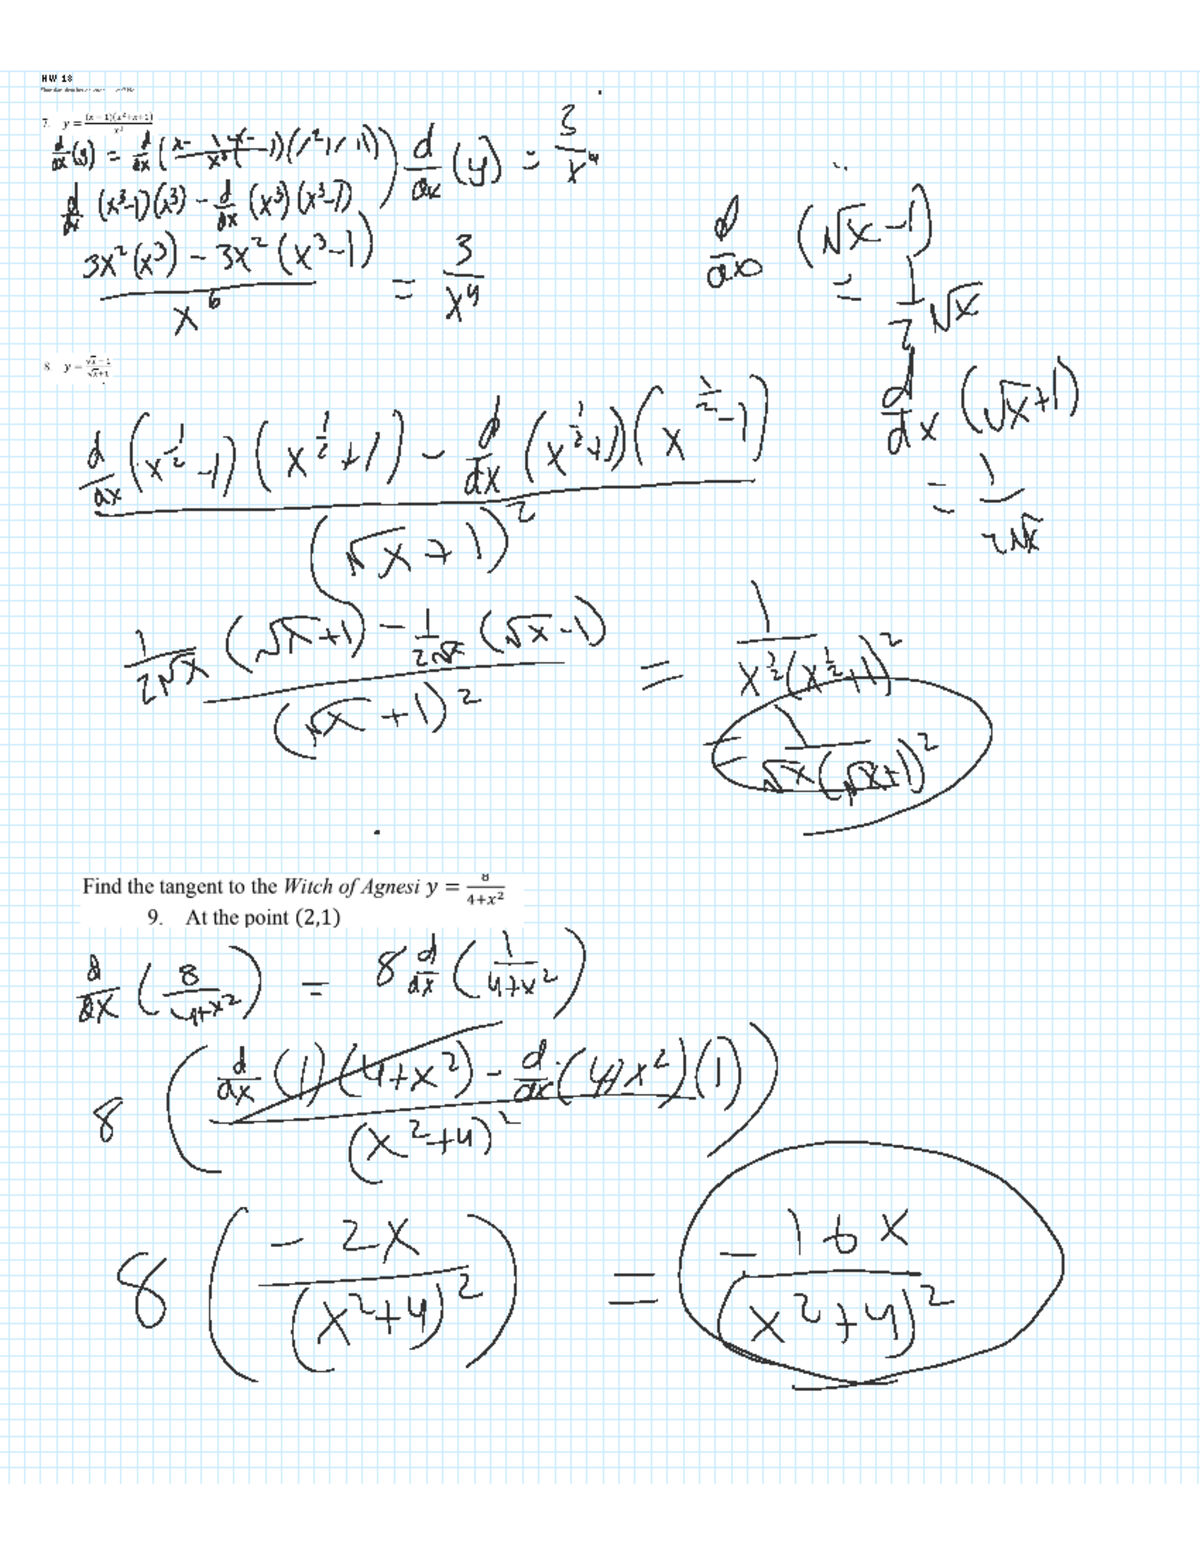 HW 18
7. y = (x − 1)(x²+x+1) / x³
d/dx (y) = d/dx
d/dx (y) = 3/x⁴
d/dx (x³-1)(x³) - d/dx (x³)(x³-1)
3x²(x³) - 3x²(x³-1) / x⁶ = 3/x⁴
d/dx (√x-1)
= 1/2√x
8 y = √x − 1 / √x+1
d/dx (√x+1)
= 1/2√x
d/dx (x^1/2 -1)(x^1/2 +1) - d/dx (x^1/2 +1)(x^1/2 -1)
(√x+1)²
1/2√x (√x+1) - 1/2√x (√x-1) / (√x+1)² = 1 / x^1/2 (x^1/2 +1)²
= 1 / √x(√x+1)²
Find the tangent to the Witch of Agnesi y = 8 / 4+x²
9. At the point (2,1)
d/dx (8 / 4+x²) = 8 d/dx (1 / 4+x²)
8 ( d/dx (1)(4+x²) - d/dx (4+x²)(1) / (x²+4)² )
8 ( -2x / (x²+4)² ) = -16x / (x²+4)²